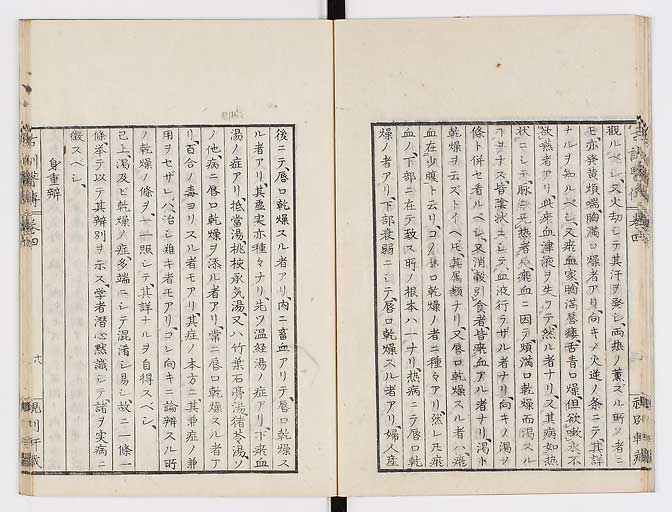 觀ルベシ、又火劫シテ其汗ヲ發シ、両熱ノ薫ズル所ノ者ニ
モ、亦發黄煩喘胸満口燥者アリ、向キノ火逆ノ条ニテ其詳
ナルヲ知ルベシ、又瘀血家胸満唇痿舌青口燥、但欲嗽水不
欲嚥者アリ、此瘀血津液ヲ失ヒテ然ル者ナリ、又其病如熱
状ニシテ脉ニ无熱者、瘀血ニ因テ、煩満口乾燥而渇スル
ヿヲナス、皆陰状ニシテ血液行ラザル者ナリ、向キノ渇ノ
條ト併セ看ルベシ、又消穀引食者皆瘀血アル者ナリ、渇ト
乾燥ヲ云ズトイヘ𪜈其属類ナリ、又唇口乾燥スル者ハ瘀
血在少腹ト云リ、コノ唇口乾燥ノ者ニ種々アリ、然レ𪜈瘀
血ノ下部ニ在テ致ス所ノ根本ハ一ナリ、熱病ニテ唇口乾
燥ノ者アリ、下部衰弱ニシテ、唇口乾燥スル者アリ、婦人産
後ニテ、唇口乾燥スル者アリ、内ニ畜血アリテ、唇口乾燥ス
ル者アリ、其虚実亦種々ナリ、先ツ温経湯ノ症アリ、下瘀血
湯ノ症アリ、抵當湯、桃核承気湯、又ハ竹葉石膏湯、猪苓湯、ソ
ノ他病ニ唇口乾燥ヲ添ル者アリ、常ニ唇口乾燥スル者ア
リ、百合ノ毒ヨリスル者モアリ、其症ノ本方ニ、其兼症ノ兼
用ヲセザレバ、治シ難キ者モアリ、コレ向キニ論辨スル所
ノ乾燥ノ條ヲ、一一照シテ、其詳ナルヲ自得スベシ、
已上、渇及ビ乾燥ノ症、多端ニシテ混淆シ易シ、故ニ一條一
條挙テ以テ其辨別ヲ示ス、学者潜心黙識シテ、諸ヲ実病ニ
徴スベシ、
身重辨